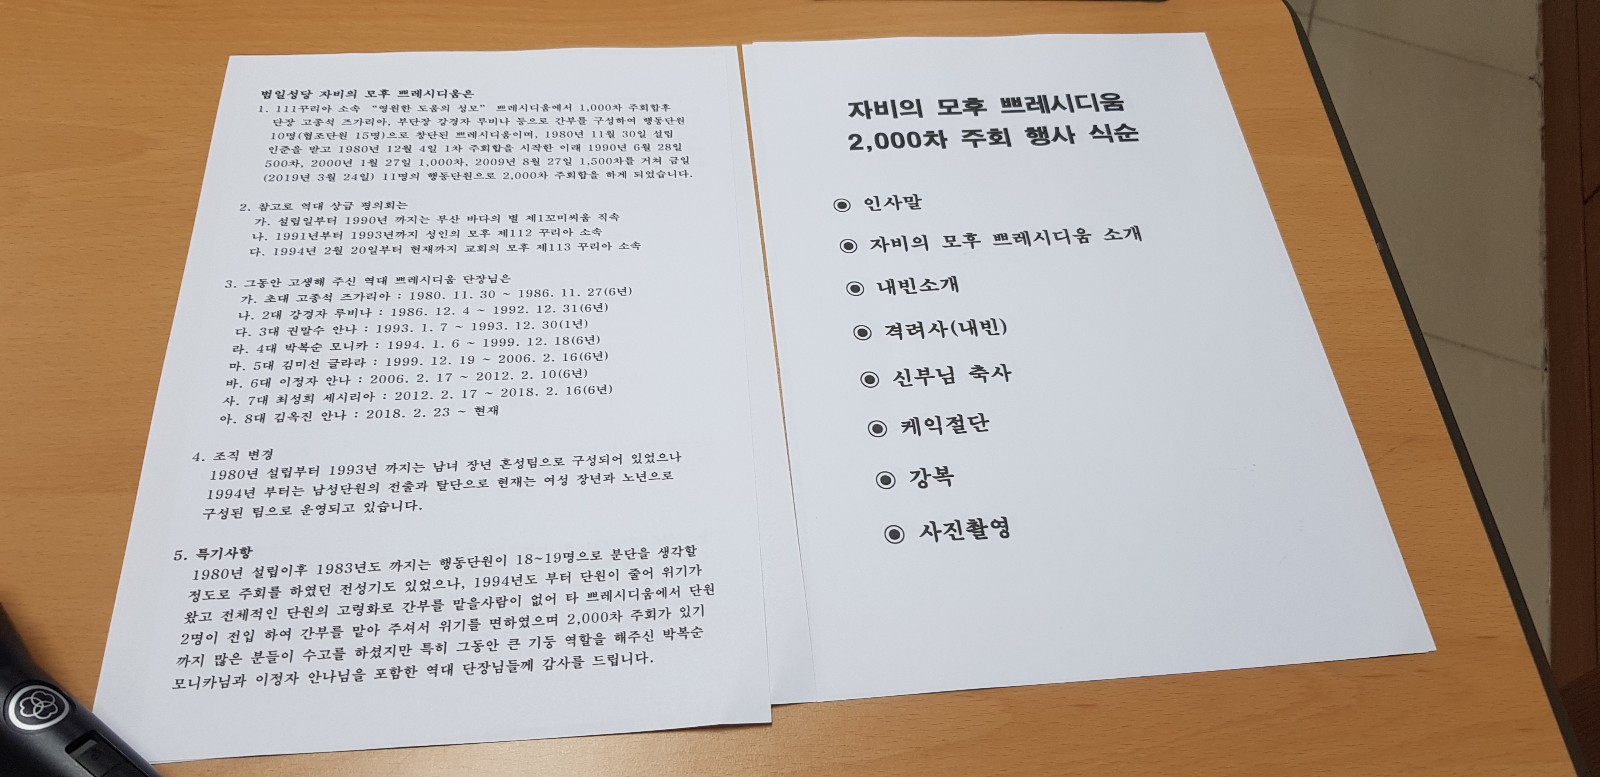 범일성당 자비의 모후 쁘레시디움은
1. 111꾸리아 소속 “영원한 도움의 성모” 쁘레시디움에서 1,000차 주회합후
단장 고종석 즈가리아, 부단장 강경자 루비나 등으로 간부를 구성하여 행동단원
10명(협조단원 15명)으로 창단된 쁘레시디움이며, 1980년 11월 30일 설립
인준을 받고 1980년 12월 4일 1차 주회합을 시작한 이래 1990년 6월 28일
500차, 2000년 1월 27일 1,000차, 2009년 8월 27일 1,500차를 거쳐 금일
(2019년 3월 24일) 11명의 행동단원으로 2,000차 주회합을 하게 되었습니다.
2. 참고로 역대 상급 평의회는
가. 설립일부터 1990년 까지는 부산 바다의 별 제1꼬미씨움 직속
나. 1991년부터 1993년까지 성인의 모후 제112 꾸리아 소속
다. 1994년 2월 20일부터 현재까지 교회의 모후 제113 꾸리아 소속
3. 그동안 고생해 주신 역대 쁘레시디움 단장님은
가. 초대 고종석 즈가리아 : 1980. 11. 30 ~ 1986. 11. 27(6년)
나. 2대 강경자 루비나 : 1986. 12. 4 ~ 1992. 12. 31(6년)
다. 3대 권말수 안나 : 1993. 1. 7 ~ 1993. 12. 30(1년)
라. 4대 박복순 모니카 : 1994. 1. 6 ~ 1999. 12. 18(6년)
마. 5대 김미선 글라라 : 1999. 12. 19 ~ 2006. 2. 16(6년)
바. 6대 이정자 안나 : 2006. 2. 17 ~ 2012. 2. 10(6년)
사. 7대 최성희 세시리아 : 2012. 2. 17 ~ 2018. 2. 16(6년)
아. 8대 김옥진 안나 : 2018. 2. 23 ~ 현재
4. 조직 변경
1980년 설립부터 1993년 까지는 남녀 장년 혼성팀으로 구성되어 있었으나
1994년 부터는 남성단원의 전출과 탈단으로 현재는 여성 장년과 노년으로
구성된 팀으로 운영되고 있습니다.
5. 특기사항
1980년 설립이후 1983년도 까지는 행동단원이 18~19명으로 분단을 생각할
정도로 주회를 하였던 전성기도 있었으나, 1994년도 부터 단원이 줄어 위기가
왔고 전체적인 단원의 고령화로 간부를 맡을사람이 없어 타 쁘레시디움에서 단원
2명이 전입 하여 간부를 맡아 주셔서 위기를 면하였으며 2,000차 주회가 있기
까지 많은 분들이 수고를 하셨지만 특히 그동안 큰 기둥 역할을 해주신 박복순
모니카님과 이정자 안나님을 포함한 역대 단장님들께 감사를 드립니다.
자비의 모후 쁘레시디움
2,000차 주회 행사 식순
◉ 인사말
◉ 자비의 모후 쁘레시디움 소개
◉ 내빈소개
◉ 격려사(내빈)
◉ 신부님 축사
◉ 케익절단
◉ 강복
◉ 사진촬영